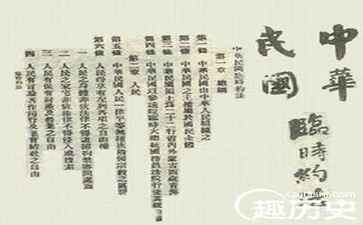 中華
民國
臨時約法
中華民國臨時約法
第一章 總綱
第一條 中華民國由中華人民組織之
第二條 中華民國之主權屬於國民全體
第三條 中華民國領土為二十二行省內外蒙古西藏青海
第四條 中華民國以參議院臨時大總統國務員法院行使其統治權
第二章 人民
第五條 中華民國人民一律平等無種族階級宗教之區別
第六條 人民得享有左列各項之自由權
一 人民之身體非依法律不得逮捕拘禁審問處罰
二 人民之家宅非依法律不得侵入或搜索
三 人民有保有財產及營業之自由
四 人民有言論著作刊行及集會結社之自由
趣历史